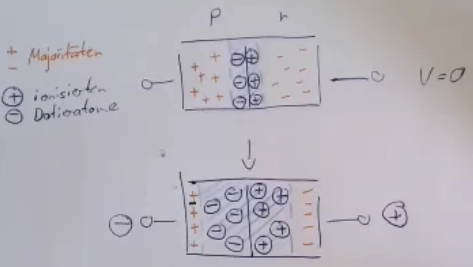 p n
+ Majoritäten
-
V=0
⊕ ionisierten
⊖ Dotieratome
⊖ ⊕